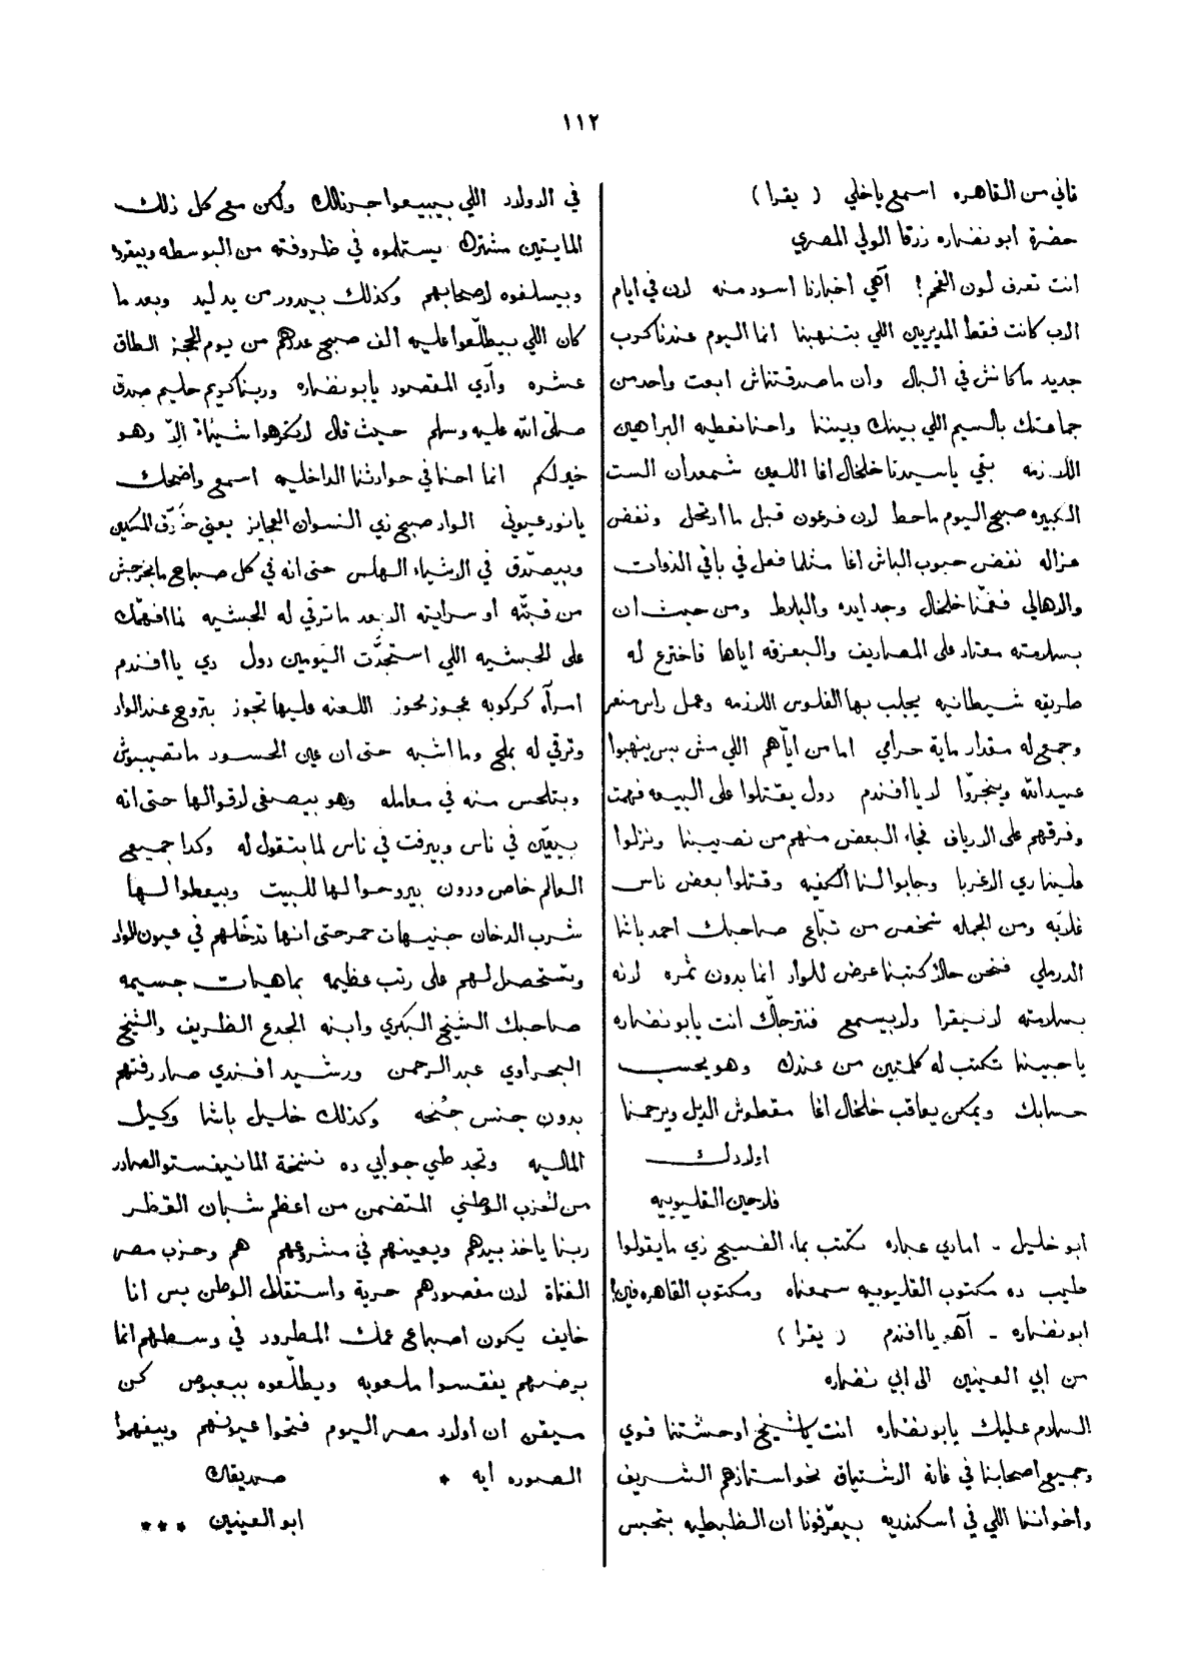 ١١٢
ثاني من القاهره اسمع ياخلي ( يقرا )
حضرة ابو نضاره زرقا الولي المصري
انت تعرف لون الفحم ! آهي اخبارنا اسود منه لان في ايام
الاب كانت فقط المديريين اللي بتنهبنا انما اليوم عندنا كرب
جديد ما كانش في البال وان ماصدقتناش ابعت واحد من
جماعتك بالسيم اللي بينك وبيننا واحنا نعطيه البراهين
اللازمه بقي ياسيدنا خلخال اغا اللعين شمعدان الست
الكبيره صبح اليوم ماحط لان فرعون قبل ما ارتحل ونفض
عزاله نفض جيوب الباش اغا مثلما فعل في باقي الذوات
والاهالي فقمنا خلخال وجد ايده والبلاط ومن حيث ان
بسلامته معتاد على المصاريف والبعزقه اياها فاخترع له
طريقه شيطانيه يجلب بها الفلوس اللازمه وعمل راس منصر
وجمع له مقدار ماية حرامي اما من ايآهم اللي مش بس ينهبوا
عبيد الله وينجروا لا ياافندم دول يقتلوا على البيعه فهمت
وفرقهم على الارياف فجاء البعض منهم من نصيبنا ونزلوا
علينا زي الاغربا وجابوا لنا الكفيه وقتلوا بعض ناس
غلابه ومن الجمله شخص من تباع صاحبك احمد باشا
الدرملي فنحن حالا كتبنا عرض للوار انما بدون ثمره لانه
بسلامته لا نيقرا ولا بيسمع فنترجاك انت يابو نضاره
ياحبيبنا تكتب له كلمتين من عندك وهو يحسب
حسابك ويمكن يعاقب خلخال اغا مقطوش الديل ويرحمنا
اولادك
فلاحين القليوبيه
ابو خليل - امادي عباره تكتب بماء الفسيح زي مايقولوا
طيب ده مكتوب القليوبيه سمعناه ومكتوب القاهره فين !
ابو نضاره - آهه ياافندم ( يقرا )
من ابي العينين الى ابي نضاره
السلام عليك يابو نضاره انت ياشيخ اوحشتنا قوي
وجميع اصحابنا في غاية الاشتياق نحو استاذهم الشريف
واخواننا اللي في اسكندريه بيعرفونا ان الظبطيه بتحبس
في الاولاد اللي بيبيعوا جرنالك ولكن مع كل ذلك
المايتين مشترك يستلموه في ظروفته من البوسطه وبيقروا
وبيسلفوه لاصحابهم وكذلك بيدور من يد ليد وبعد ما
كان اللي بيطلعوا عليه الف صبح عددهم من يوم الحجز الطاق
عشره وآدي المقصود يابو نضاره وربنا كريم حليم صدق
صلى الله عليه وسلم حيث قال لا تكرهوا شيئاً إلاّ وهو
خير لكم انما احنا في حوادثنا الداخليه اسمع واضحك
يانور عيوني الوار صبح زي النسوان العجايز يعني خرّف المسكين
وبيصدّق في الاشياء الهلس حتى انه في كل صباح ما بخرجش
من قبته او سرايته الا بعد ما ترقي له الحبشيه فما افهمك
على الحبشيه اللي استجدت اليومين دول دي ياافندم
امرأه كركوبه عجوز محوز اللعنه عليها تجوز بتروح عند الوار
وترقي له بملح وما اشبه حتى ان عين الحسود ماتصيبوش
وبتلحس منه في معامله وهو بيصغي لاقوالها حتى انه
بيعيّن في ناس وبيرفت في ناس لما بتقول له وكدا جميع
العالم خاص ودون بيروحوا لها للبيت وبيعطوا لها
شرب الدخان جنيهات حمر حتى انها تدخلهم في عيون الوار
وتستحصل لهم على رتب عظيمه بماهيات جسيمه
صاحبك الشيخ البكري وابنه الجدع الظريف والشيخ
البحراوي عبد الرحمن ورشيد افندي صار رفتهم
بدون جنس جنحه وكذلك خليل باشا وكيل
الماليه وتجد طي جوابي ده نسخة المانيفستو الصادر
من لحزب الوطني المتضمن من اعظم شبان القطر
ربنا ياخذ بيدهم ويعينهم في مشروعهم هم وحزب مصر
الفتاة لان مقصودهم حرية واستقلال الوطن بس انا
خايف يكون اصباع عمك المطرود في وسطهم انما
برضهم يفقسوا ملعوبه ويطلّعوه ببعبوص كن
متيقن ان اولاد مصر اليوم فتحوا عيونهم وبيفهموا
الصوره ايه *
صديقك
ابو العينين ***